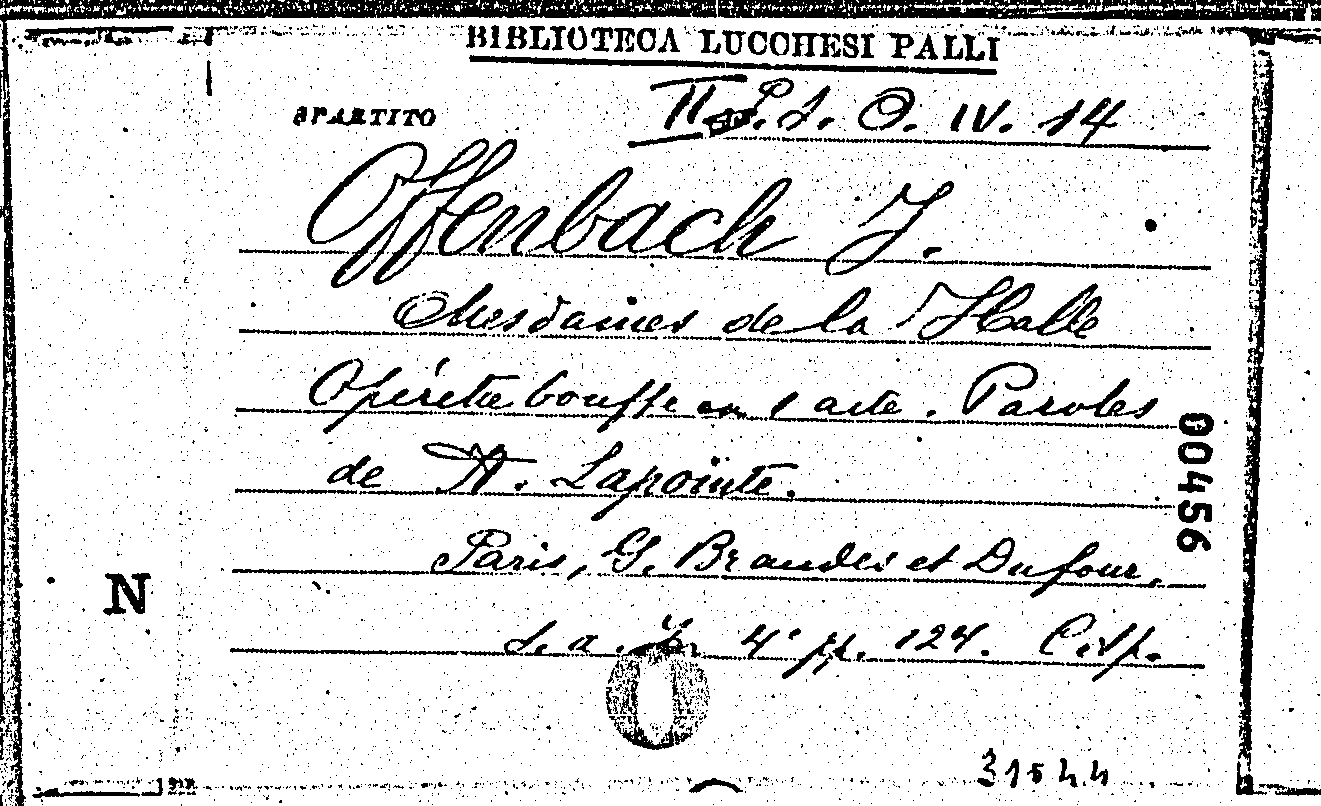 BIBLIOTECA LUCCHESI PALLI
SPARTITO
II. P. S. O. IV. 14
Offenbach J.
Mesdames de la Halle
Opérette bouffe en 1 acte. Paroles
de A. Lapointe.
Paris, G. Brandus et Dufour.
s. a. in 4° pp. 124. C. sp.
00456
N
31544